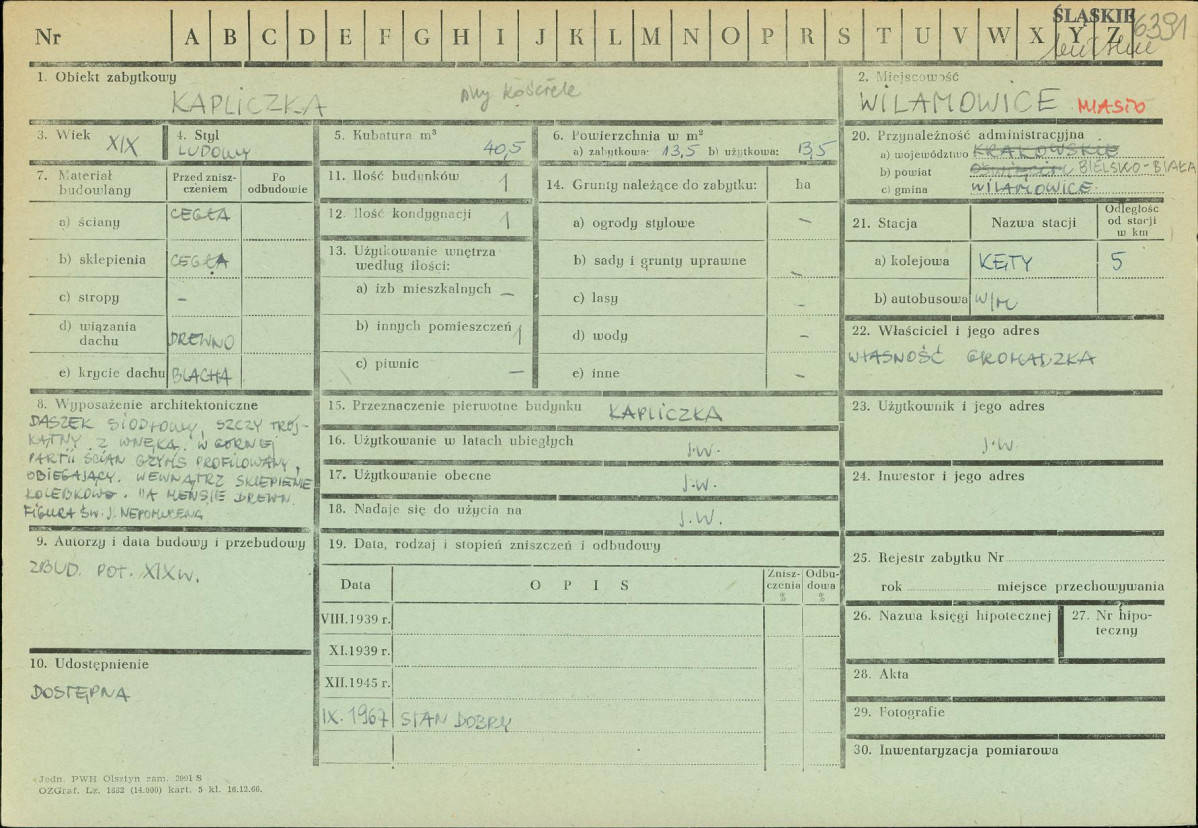 Nr A B C D E F G H I J K L M N O P R S T U V W X Y Z
ŚLĄSKIE 6391
1. Obiekt zabytkowy
KAPLICZKA przy kościele
2. Miejscowość
WILAMOWICE MIASTO
3. Wiek XIX
4. Styl
LUDOWY
5. Kubatura m³
40,5
6. Powierzchnia w m²
a) zabytkowa: 13,5 b) użytkowa: 13,5
7. Materiał budowlany
Przed zniszczeniem
Po odbudowie
a) ściany CEGŁA
b) sklepienia CEGŁA
c) stropy –
d) wiązania dachu DREWNO
e) krycie dachu BLACHA
8. Wyposażenie architektoniczne
DASZEK SIODŁOWY, SZCZYT TRÓJ-
KĄTNY Z WNĘKĄ. W GÓRNEJ
PARTII ŚCIAN GZYMS PROFILOWANY,
OBIEGAJĄCY. WEWNĄTRZ SKLEPIENIE
KOLEBKOWE. NA MENSIE DREWN.
FIGURA ŚW. J. NEPOMUCENA
9. Autorzy i data budowy i przebudowy
ZBUD. POŁ. XIX W.
10. Udostępnienie
DOSTĘPNA
11. Ilość budynków 1
12. Ilość kondygnacji 1
13. Użytkowanie wnętrza według ilości:
a) izb mieszkalnych –
b) innych pomieszczeń 1
c) piwnic –
14. Grunty należące do zabytku: ha
a) ogrody stylowe –
b) sady i grunty uprawne –
c) lasy –
d) wody –
e) inne –
15. Przeznaczenie pierwotne budynku KAPLICZKA
16. Użytkowanie w latach ubiegłych J.W.
17. Użytkowanie obecne J.W.
18. Nadaje się do użycia na J.W.
19. Data, rodzaj i stopień zniszczeń i odbudowy
Data O P I S Zniszczenia % Odbudowa %
VIII.1939 r.
XI.1939 r.
XII.1945 r.
IX.1967 STAN DOBRY
20. Przynależność administracyjna
a) województwo KRAKOWSKIE
b) powiat BIELSKO-BIAŁA
c) gmina WILAMOWICE
21. Stacja Nazwa stacji Odległość od stacji w km
a) kolejowa KĘTY 5
b) autobusowa W/M
22. Właściciel i jego adres
WŁASNOŚĆ GROMADZKA
23. Użytkownik i jego adres
J.W.
24. Inwestor i jego adres
25. Rejestr zabytku Nr
rok miejsce przechowywania
26. Nazwa księgi hipotecznej
27. Nr hipoteczny
28. Akta
29. Fotografie
30. Inwentaryzacja pomiarowa
Jedn. PWH Olsztyn zam. 2991 S
OZGraf. Lz. 1882 (14.000) kart. 5 kl. 16.12.66.